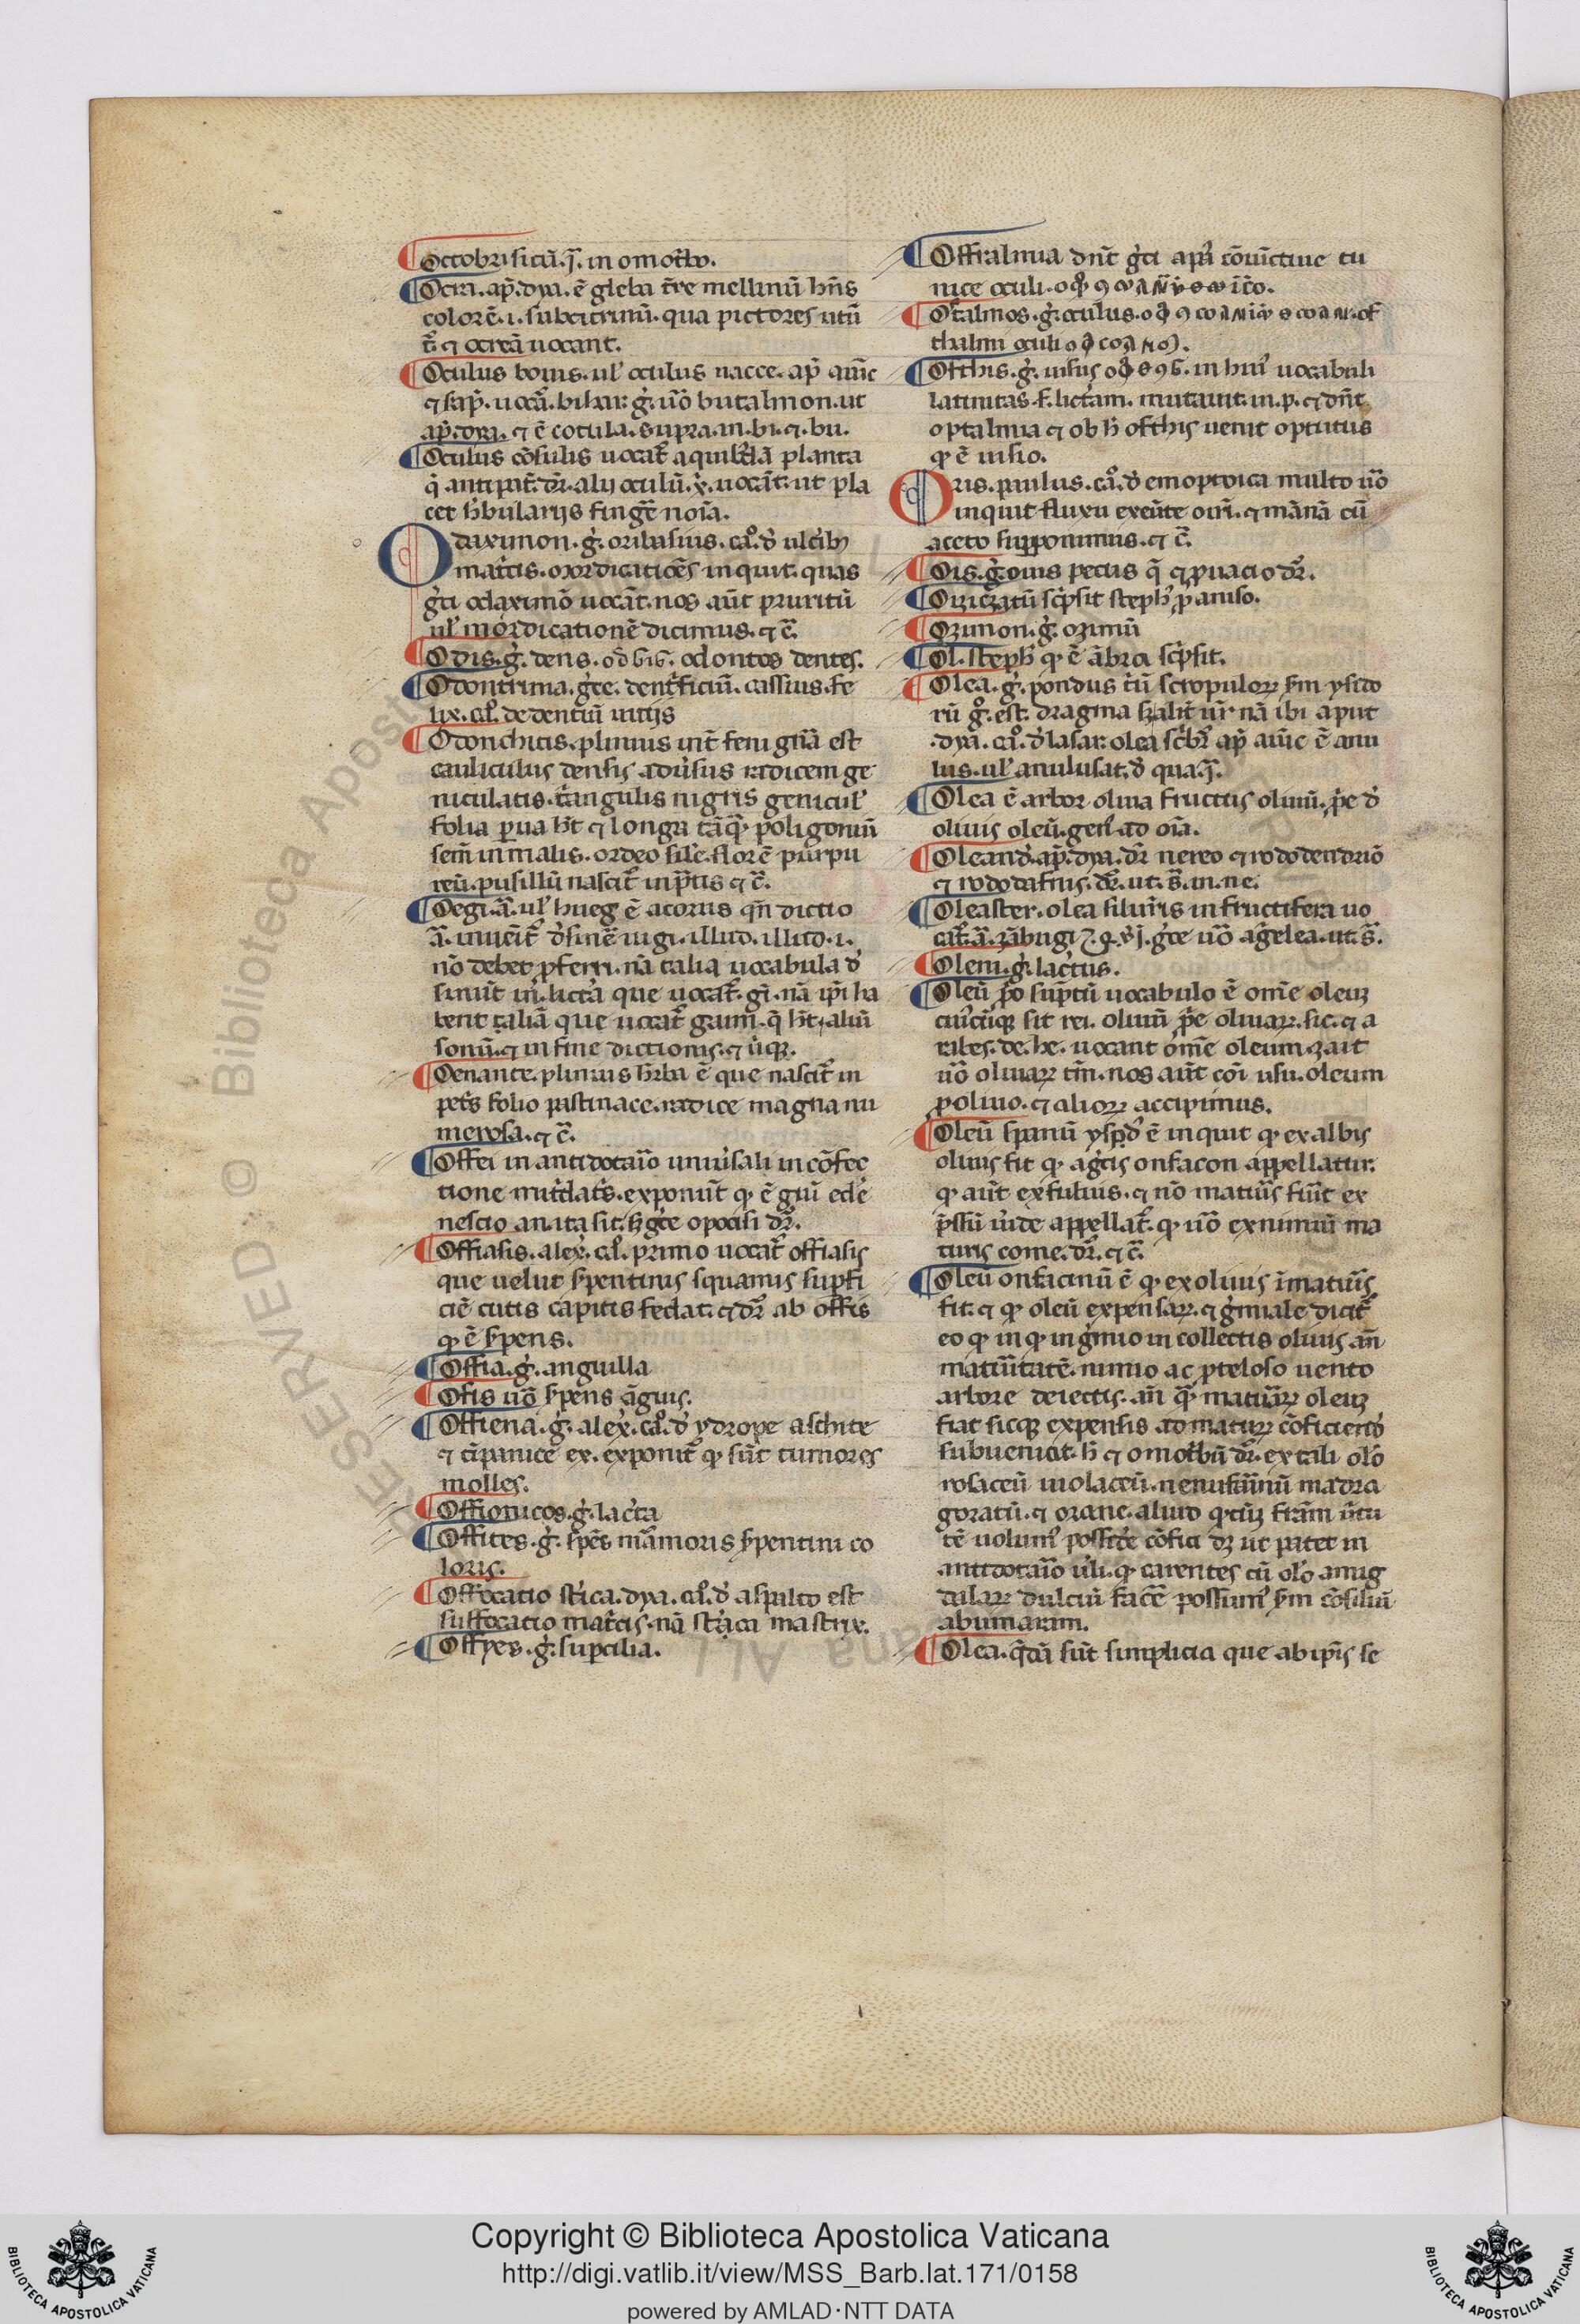 Octobri sicū. q̄. in omotbo.
Ocra. ap̄. dya. ē gleba t̄re mellinū hn̄s
colorē. i. subcitrinū. qua pictores utū
t̄. ⁊ ocreā uocant.
Oculus bouis. ul' oculus uacce. ap̄ auic̄
⁊ sap̄. uocā. bihar. ġ. ūo butalmon. ut
ap̄. dya. ⁊ ē cotula. supra. in. bi. ⁊. bu.
Oculus cōsulis uocat̄ a quib'dā planta
q̄ anti pat̄. dr̄. alij oculū. x̄. uocāt. ut pla
cet h̄bularijs fingē noīa.
Odaximon. ġ. oribasius. ca°. d' ulc̄ib;
mat̄cis. mordicatiōes inquit. quas
ġci odaximō uocāt. nos aūt pruritū
ul' mordicationē dicimus. ⁊ c̄.
Odis. ġ. dens. odontos dentes.
Odontrima. ġce. dent̄ficiū. cassius. fe
lix. ca°. de dentiū uitijs
Odonchitis. plinius inīt feni gn̄a est
cauliculus densis adūsus radicem ge
niculatis. t̄angulis nigris genicul'
folia p̱ua h̄t ⁊ longa tāq̄ poligoniū
sem̄ in malis. ordeo sil'e. florē purpu
reū. pusillū nascit̄ in p̄tis ⁊ c̄.
Oegi. ā. ul' hueg ē acorus qn̄ dictio
ā. inuēit̄ d'sinē in gi. illud. illud. i.
nō debet p̱ferri. nā talia uocabula d'
sinūt in. licc̄a que uocat̄. gī. nā ip̄i ha
bent taliā que uocat̄ gaim. q̄ h̄t. aliū
sonū. ⁊ in fine dictionis. ⁊ ūq;.
Oenante. plinius h̄ba ē que nascit̄ in
pet̄s folio pastinace. radice magna nu
merosa. ⁊ c̄.
Offei in antidotaīo uniūsali in cōfec
tione mit̄dat̄s. exponūt qͥ ē giū ede
nescio an ita sit. s; ġce opocisi dr̄.
Offiasis. alex̄. ca°. primo uocat̄ offiasis
que uelut s̱pentinis squamis sup̱fi
ciē cutis capitis fedat. ⁊ dr̄ ab offis
qͥ ē s̱pens.
Offia. ġ. anguilla
Ofis ūo s̱pens āguis.
Offiena. ġ. alex̄. ca°. d' ydrope aschite
⁊ tīpanice ex. exponit̄ qͥ sūt tumores
molles.
Offionicos. ġ. lac̄ta
Offites. ġ. sp̄es māmoris s̱pentini co
loris.
Offocatio st̄ica. dya. ca°. d' aspalto est
suffocatio mat̄cis. nā st̄ica mastrix.
Offyes. ġ. sup̱cilia.
Offtalmia dn̄t ġci apd' cōiūctiue tu
nice oculi.
Oftalmos. ġ. oculus. of
thalmi oculi
Ofthis. ġ. uisus in hui' uocabuli
latinitas. f. lict̄am. mutauit. in. p. ⁊ dn̄t
optalmia ⁊ ob h̄ ofthis uenit optutus
qͥ ē uisio.
Oris. paulus. ca°. d' emoptoica multo ūo
inquit fluxu exeūte ouī. ⁊ mānā cū
aceto supponimus. ⁊ c̄.
Ois. ġ. ouis pecus q̄ ⁊ p̱uacio dr̄.
Oizic̄atū sc̄psit steph' p̱ aniso.
Ozimon. ġ. ozimū
Ol. steph' qͥ ē ābra sc̄psit.
Olea. ġ. pondus t̄iū scropulor; s̄m ysido
rū ġ. est. dragma h; ālit̄ ur̄ nā ibi aput
dya. ca°. d' lasar. olea sc̄b' ap̄ auic̄ ē anu
lus. ul' anulusat. d' qua. q̄.
Olea ē arbor oliua fructus oliuū. p̄e d'
oliuis oleū. gen' ad oīa.
Oleand'. ap̄. dya. dr̄ nereo ⁊ rododendriō
⁊ rododafnis. dr̄. ut. s̄. in. ne.
Oleaster. olea siluīs infructifera uo
cat̄. ā. zābugi ġce ūo aġelea. ut. s̄.
Oleni. ġ. lac̄tus.
Oleū p̱o sup̄tū uocabulo ē om̄e oleuz
cuic̄ūq; sit rei. oliuū p̄e oliuar;. sic. ⁊ a
rabes. de. he. uocant om̄e oleum zait
ūo oliuar; tm̄. nos aūt cōi usu. oleum
p̱oliuo. ⁊ alior; accipimus.
Oleū spanū ysid' ē inquit qͥ ex albis
oliuis fit qͥ aġcis onfacon appellatur.
qͥ aūt ex fuluis. ⁊ nō matur̄s fiūt ex
p̄ssū ūide appellat̄. qͥ ūo ex nimiū ma
turis come. dr̄. ⁊ c̄.
Oleū onfacinū ē qͥ ex oliuis īmatur̄s
fit. ⁊ qͥ oleū expensar;. ⁊ ġmiale dicit̄
eo qͥ in qͥ in ġmio in collectis oliuis an̄
matur̄tatē. nimio ac p̱celoso uento
arbore deiectis. an̄ q̄ matūar; oleuz
fiat sicq; expensis ad matur; cōficiend'
subueniat. h̄ ⁊ omotbū dr̄. ex tali olō
rosaceū uiolaceū. nenufārinū madra
goratū. ⁊ orane. aliud qͥcūz frām ūtu
tē uolum' possid'e cōfici dz ut patet in
antidotaīo ūli. qͥ carentes cū olō amig
dalar; dulciū facē possum' s̄m cōsiliū
abumaram.
Olea. q̄dā sūt simplicia que ab ip̄is se
Copyright © Biblioteca Apostolica Vaticana
http://digi.vatlib.it/view/MSS_Barb.lat.171/0158
powered by AMLAD·NTT DATA
BIBLIOTECA APOSTOLICA VATICANA
BIBLIOTECA APOSTOLICA VATICANA